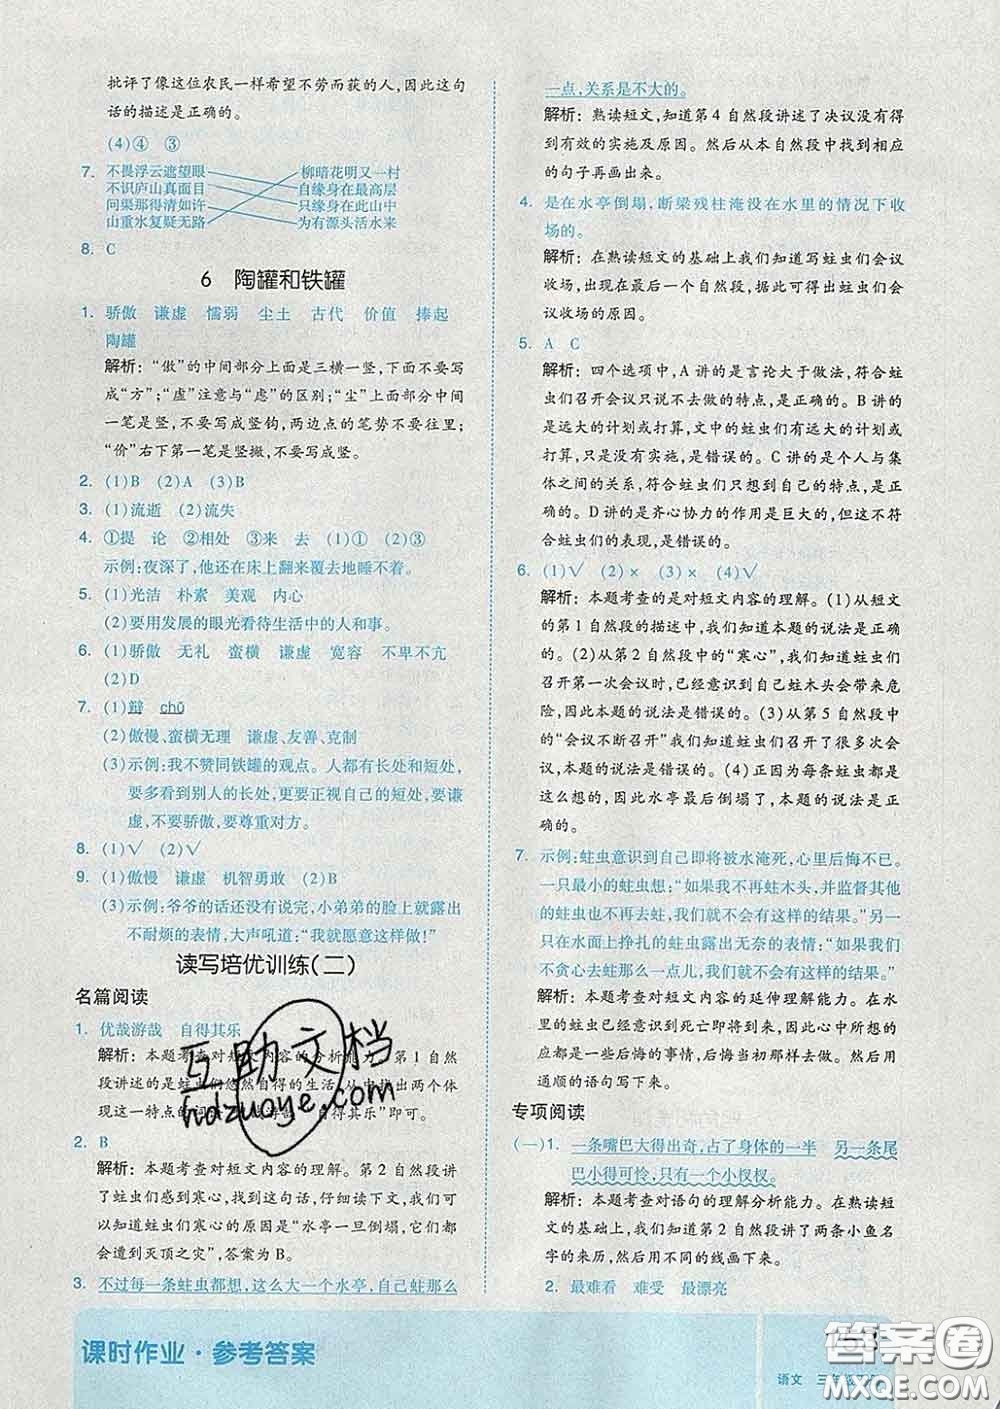 批评了像这位农民一样希望不劳而获的人,因此这句
话的描述是正确的。
(4)④ ③
7. 不畏浮云遮望眼 柳暗花明又一村
不识庐山真面目 自缘身在最高层
问渠那得清如许 只缘身在此山中
山重水复疑无路 为有源头活水来
8. C
6 陶罐和铁罐
1. 骄傲 谦虚 懦弱 尘土 古代 价值 捧起
陶罐
解析:“傲”的中间部分上面是三横一竖,下面不要写
成“方”;“虚”注意与“虑”的区别;“尘”上面部分中间
一笔是竖,不要写成竖钩,两边点的笔势不要往里;
“价”右下第一笔是竖撇,不要写成竖。
2. (1)B (2)A (3)B
3. (1)流逝 (2)流失
4. ①提 论 ②相处 ③来 去 (1)① (2)③
示例:夜深了,他还在床上翻来覆去地睡不着。
5. (1)光洁 朴素 美观 内心
(2)要用发展的眼光看待生活中的人和事。
6. (1)骄傲 无礼 蛮横 谦虚 宽容 不卑不亢
(2)D
7. (1)辩 chǔ
(2)傲慢、蛮横无理 谦虚、友善、克制
(3)示例:我不赞同铁罐的观点。人都有长处和短处,
要多看到别人的长处,更要正视自己的短处,要谦
虚,不要骄傲,要尊重对方。
8. (1)√ (2)√
9. (1)傲慢 谦虚 机智勇敢 (2)B
(3)示例:爷爷的话还没有说完,小弟弟的脸上就露出
不耐烦的表情,大声吼道:“我就愿意这样做!”
读写培优训练(二)
名篇阅读
1. 优哉游哉 自得其乐
解析:本题考查对短文内容的分析能力。第1自然
段讲述的是蛀虫们悠然自得的生活,从中找出两个体
现这一特点的词语“优哉游哉 自得其乐”即可。
2. B
解析:本题考查对短文内容的理解。第2自然段讲
了蛀虫们感到寒心,找到这句话,仔细读下文,我们可
以知道蛀虫们寒心的原因是“水亭一旦倒塌,它们都
会遭到灭顶之灾”,答案为B。
3. 不过每一条蛀虫都想,这么大一个水亭,自己蛀那么
一点,关系是不大的。
解析:熟读短文,知道第4自然段讲述了决议没有得
到有效的实施及原因。然后从本自然段中找到相应
的句子再画出来。
4. 是在水亭倒塌,断梁残柱淹没在水里的情况下收
场的。
解析:在熟读短文的基础上我们知道写蛀虫们会议
收场,出现在最后一个自然段,据此可得出蛀虫们会
议收场的原因。
5. A C
解析:四个选项中,A讲的是言论大于做法,符合蛀
虫们召开会议只说不去做的特点,是正确的。B讲的
是远大的计划或打算,文中的蛀虫们没有大的计划或
打算,只是没有实施,是错误的。C讲的是个人与集
体之间的关系,符合蛀虫们只想到自己的特点,是正
确的。D讲的是齐心协力的作用是巨大的,但是这不
符合蛀虫们的表现,是错误的。
6. (1)√ (2)× (3)× (4)√
解析:本题考查的是对短文内容的理解。(1)从短文
的第1自然段的描述中,我们知道本题的说法是正确
的。(2)从第2自然段中的“寒心”,我们知道蛀虫们召
开第一次会议时,已经意识到自己蛀木头会带来危
险,因此本题的说法是错误的。(3)从第5自然段中
的“会议不断召开”我们知道蛀虫们召开了很多次会
议,本题的说法是错误的。(4)正因为每条蛀虫都是
这么想的,因此水亭最后倒塌了,本题的说法是正
确的。
7. 示例:蛀虫意识到自己即将被水淹死,心里后悔不已。
一只最小的蛀虫想:“如果我不再蛀木头,并监督其他
蛀虫也不再去蛀,我们就不会有这样的结果。”另一
只在水面上挣扎的蛀虫露出无奈的表情:“如果我们
不贪心,每天只蛀那么一点点,就不会有这样的结果。”
解析:本题考查对短文内容的延伸理解能力。在水
里的蛀虫已经意识到死亡即将到来,因此心中所想的
应都是一些后悔的事情,后悔当初那样去做。然后用
通顺的语句写下来。
专项阅读
(一)1. 一条嘴巴大得出奇,占了身体的一半 另一条尾
巴小得可怜,只有一个小杈杈。
解析:本题考查对语句的理解分析能力。在熟读短
文的基础上,我们知道第2自然段讲了两条小鱼名
字的来历,然后用不同的线画下来。
2. 最难看 难受 最漂亮
互助文档
hdzuoye.com
课时作业·参考答案
答案圈
MXQE.COM
语文 三年级